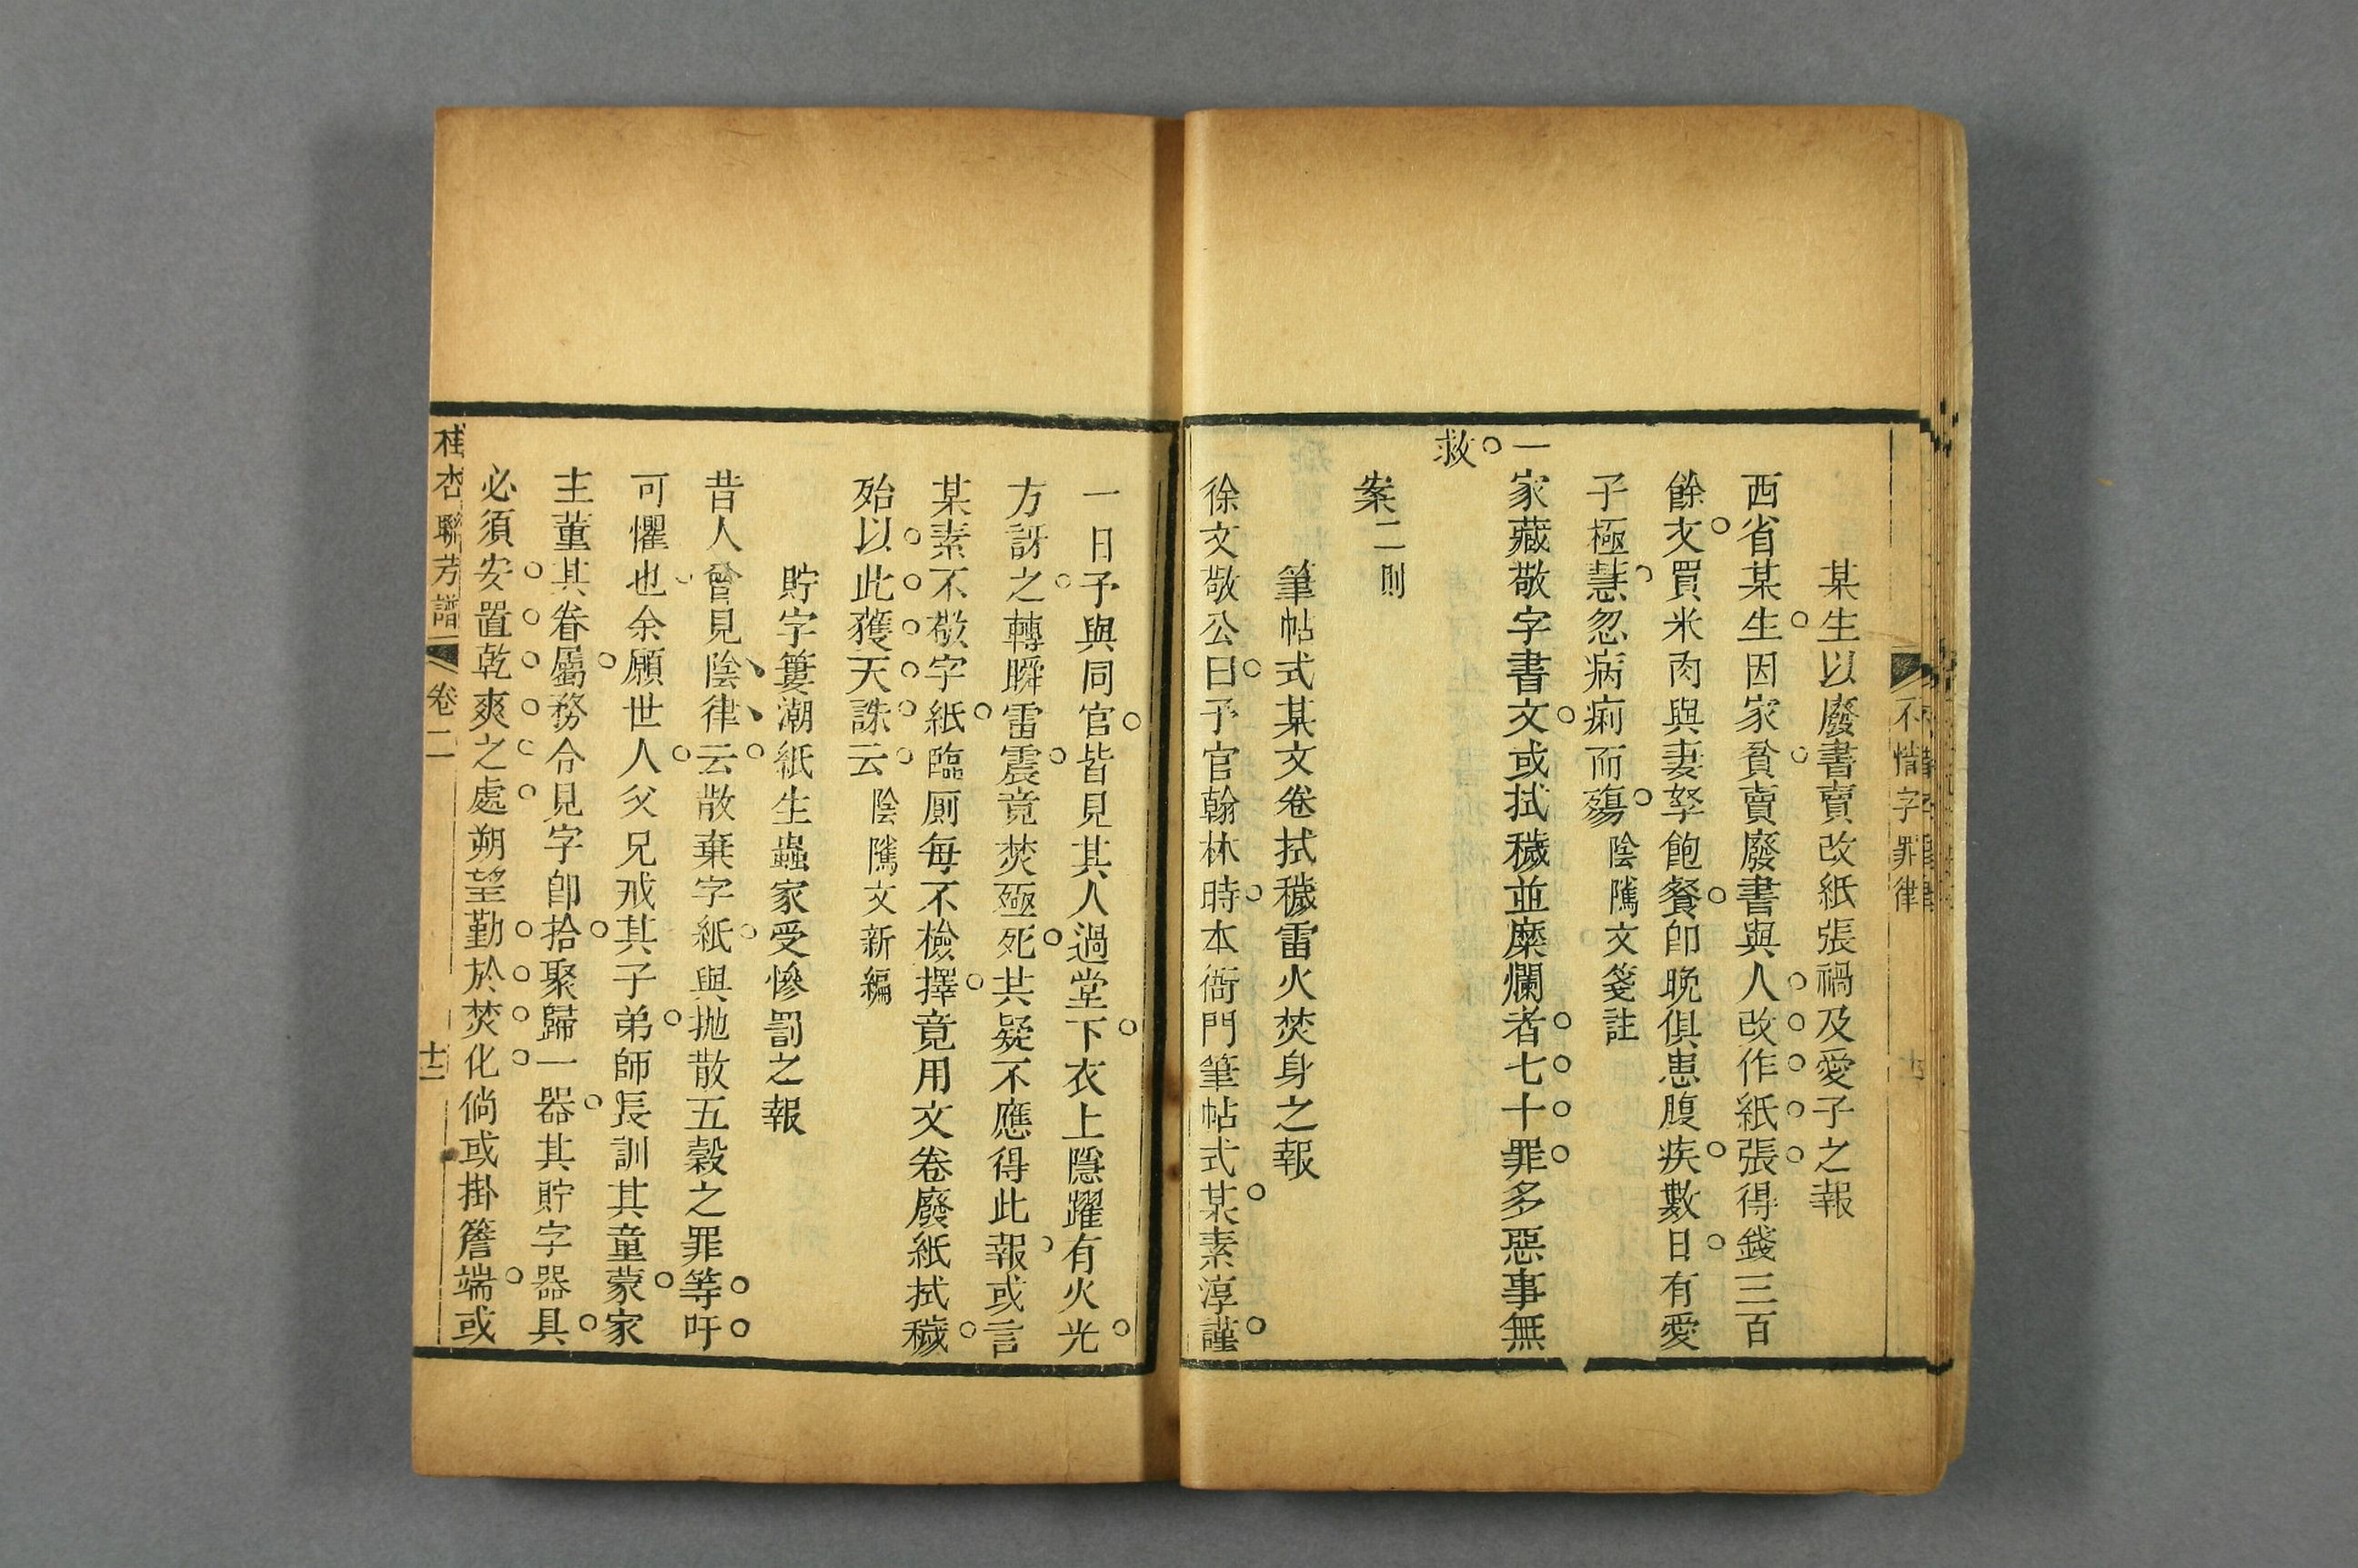 不惜字罪律
某生以廢書賣改紙張禍及愛子之報
西省某生因家貧賣廢書與人改作紙張得錢三百
餘文買米肉與妻孥飽餐卽晚俱患腹疾數日有愛
子極慧忽病痢而殤陰隲文箋註
一家藏敬字書文或拭穢並糜爛者七十罪多惡事無
救
案二則
筆帖式某文卷拭穢雷火焚身之報
徐文敬公曰予官翰林時本衙門筆帖式某素淳謹
一日予與同官皆見其人過堂下衣上隱躍有火光
方訝之轉瞬雷震竟焚殛死共疑不應得此報或言
某素不敬字紙臨厠每不檢擇竟用文卷廢紙拭穢
殆以此獲天誅云陰隲文新編
貯字簍潮紙生蟲家受慘罰之報
昔人曾見陰律云散棄字紙與抛散五穀之罪等吁
可懼也余願世人父兄戒其子弟師長訓其童蒙家
主董其眷屬務令見字卽拾聚歸一器其貯字器具
必須安置乾爽之處朔望勤於焚化倘或掛簷端或
桂杏聯芳譜
卷二
十二